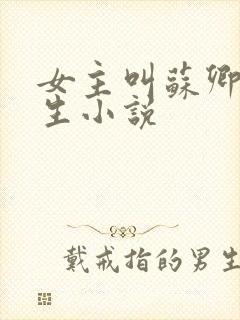 女主叫蘇卿
生小說
戴戒指的男生